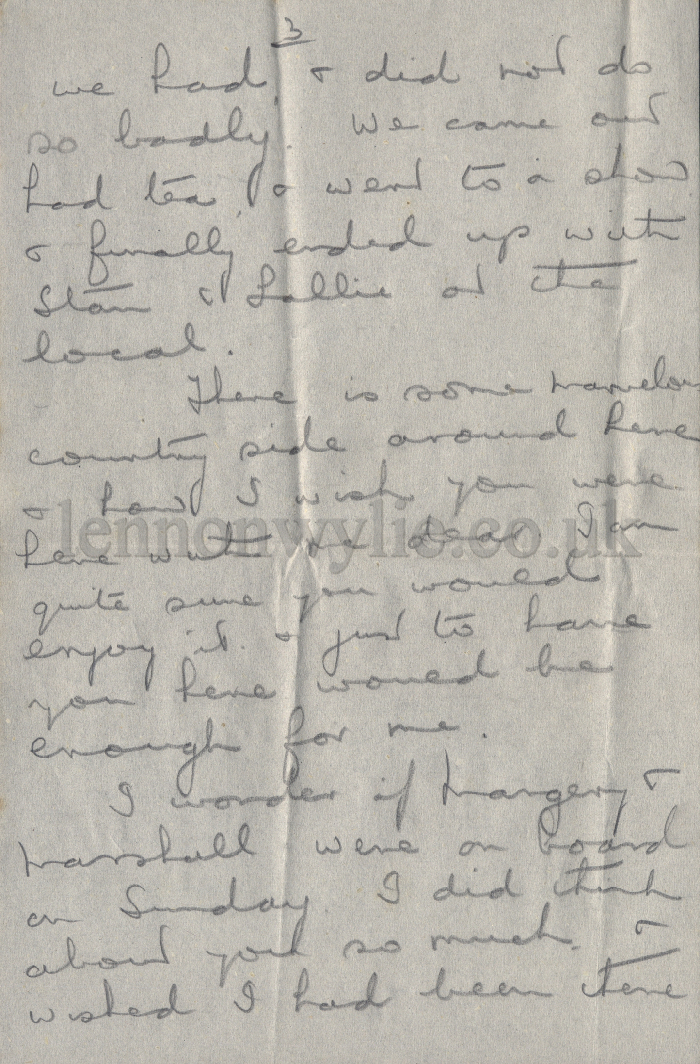 3
we had, & did not do
so badly. We came out
had tea, & went to a show
& finally ended up with
Stan & Lallie at the
local.
There is some marvelou
country side around here
& how I wish you were
here with me dear I am
quite sure you would
enjoy it. & just to have
you here would be
enough for me.
I wonder if Margery &
Marshall were on board
on Sunday. I did think
about you so much. &
wished I had been there
lennonwylie.co.uk